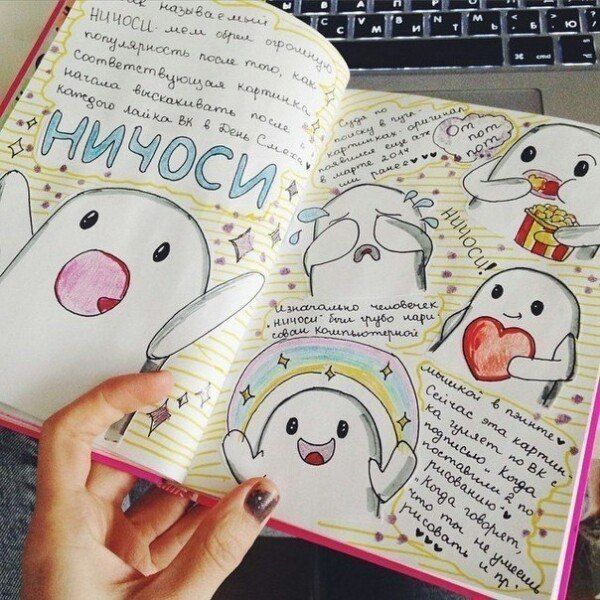 называемый
НИЧОСИ мем обрел огромную
популярность после того, как
соответствующая картинка
начала выскакивать после
каждого лайка ВК в День Смеха
НИЧОСИ
Судя по
поиску в гугл
картинках, оригинал
появился еще аж
в марте 2014
или ранее
Om
nom
nom
НИЧОСИ!
Изначально человечек
"НИЧОСИ" был грубо нари
сован компьютерной
мышкой в пэинте
Сейчас эта картин
ка гуляет по ВК с
подписью "Когда
поставили 2 по
рисованию"
"Когда говорят,
что ты не умеешь
рисовать и пр.